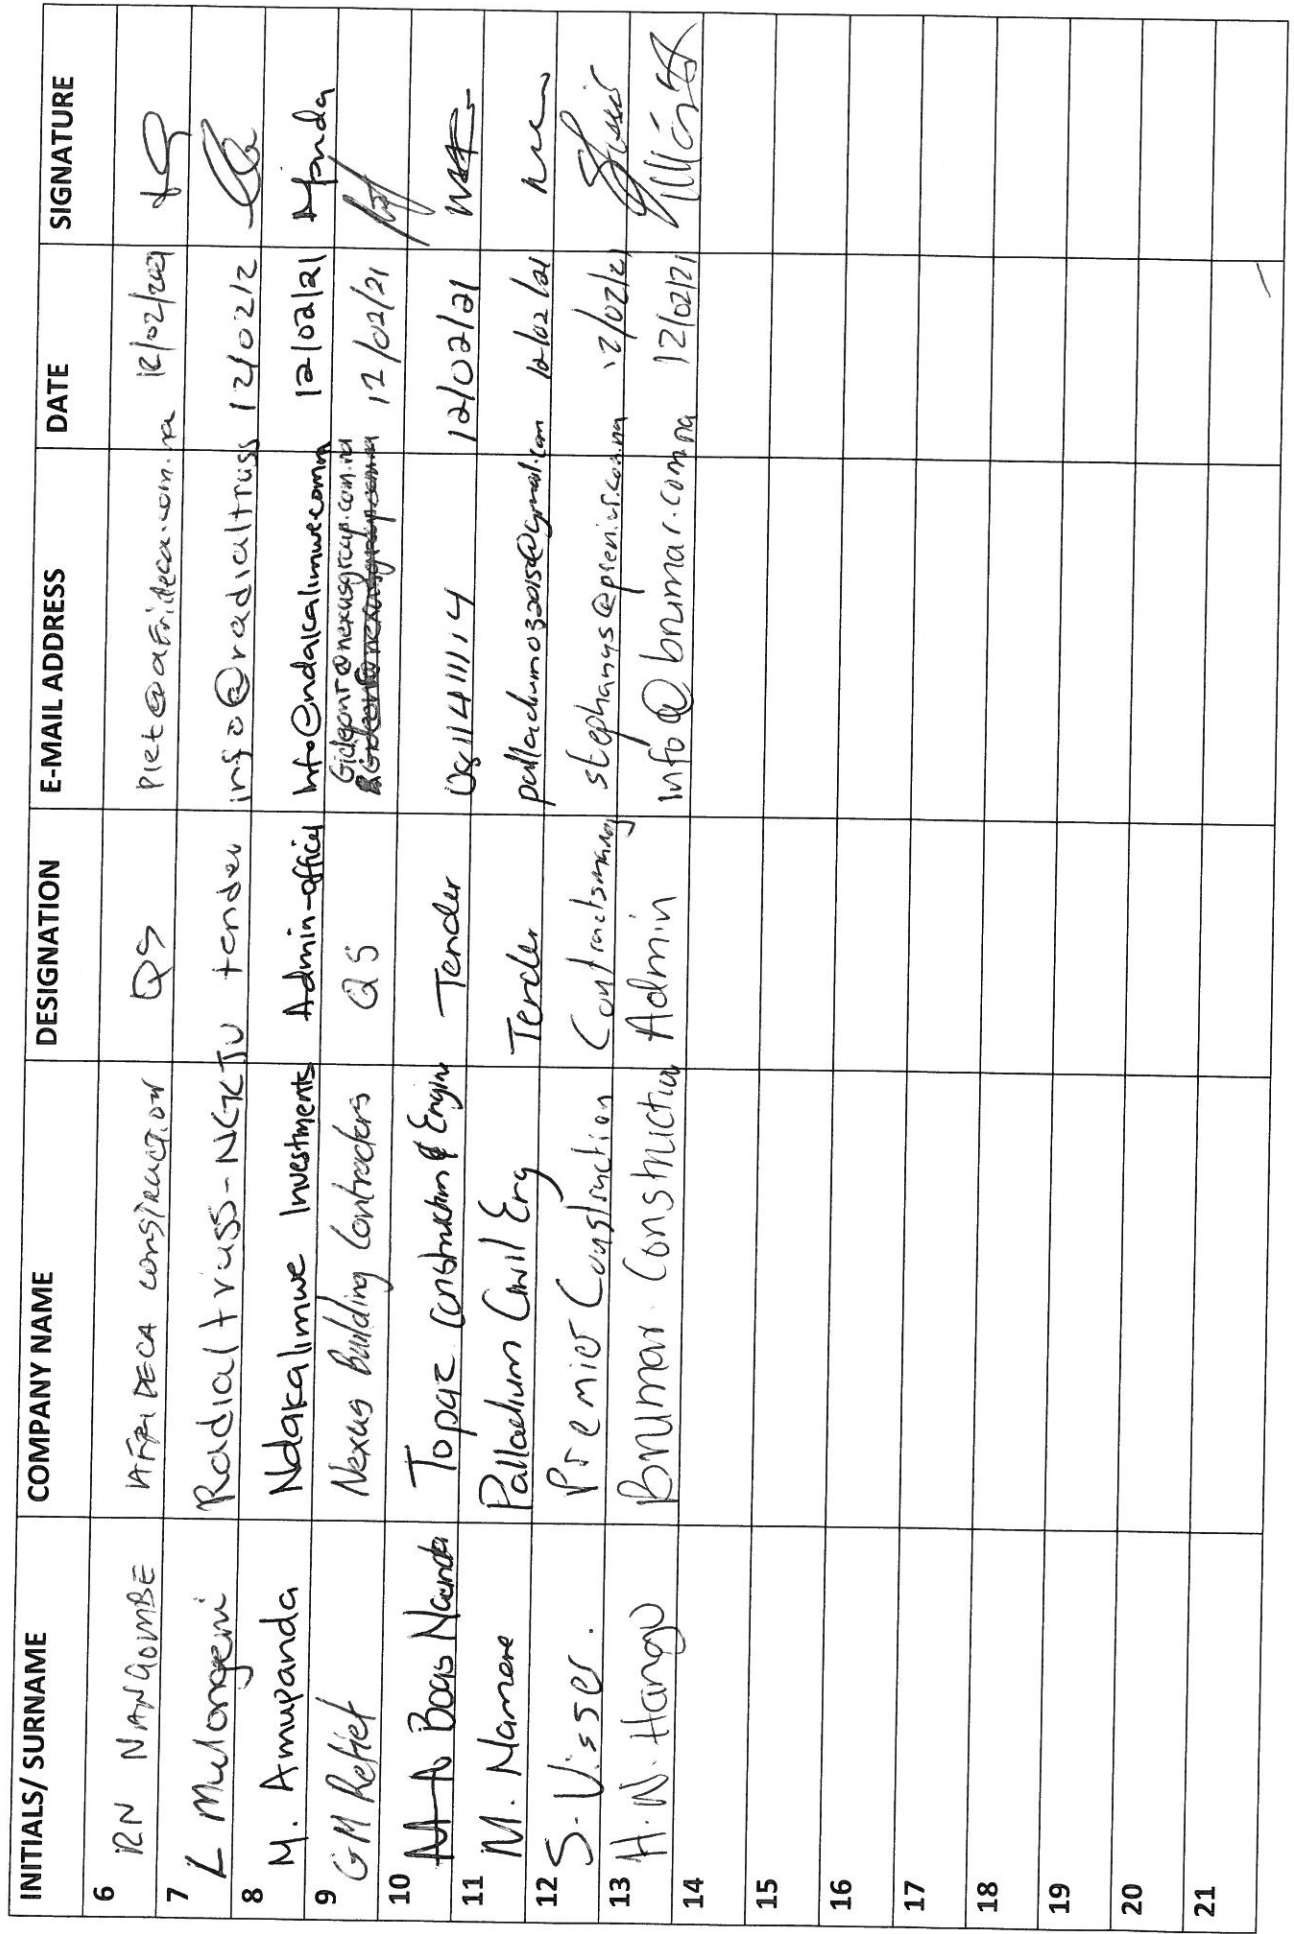 INITIALS/ SURNAME COMPANY NAME DESIGNATION E-MAIL ADDRESS DATE SIGNATURE
6 RN NANGOMBE AFRIDECA CONSTRUCTION QS Piet@afrideca.com.na 12/02/2021
7 L Mulongeni Radialtruss-NCKJV tender info@radialtruss 12/02/2
8 M. Amupanda Ndakalimwe Investments Admin-officer Info@ndakalimwe.comna 12/02/21 Minda
9 GM Retief Nexus Building Contractors QS Gideonr@nexusgroup.com.na 12/02/21
10 Boas Topaz Construction & Engin Tender 0811411114 12/02/21
11 M. Mamene Palladium Civil Eng Tender palladium032015@gmail.com 12/02/21
12 S. Visser. Premier Construction Contractsmanag stephanys@premier.com.na 12/02/21
13 H.N. Hangu Brumar Construction Admin info@brumar.com.na 12/02/21
14
15
16
17
18
19
20
21